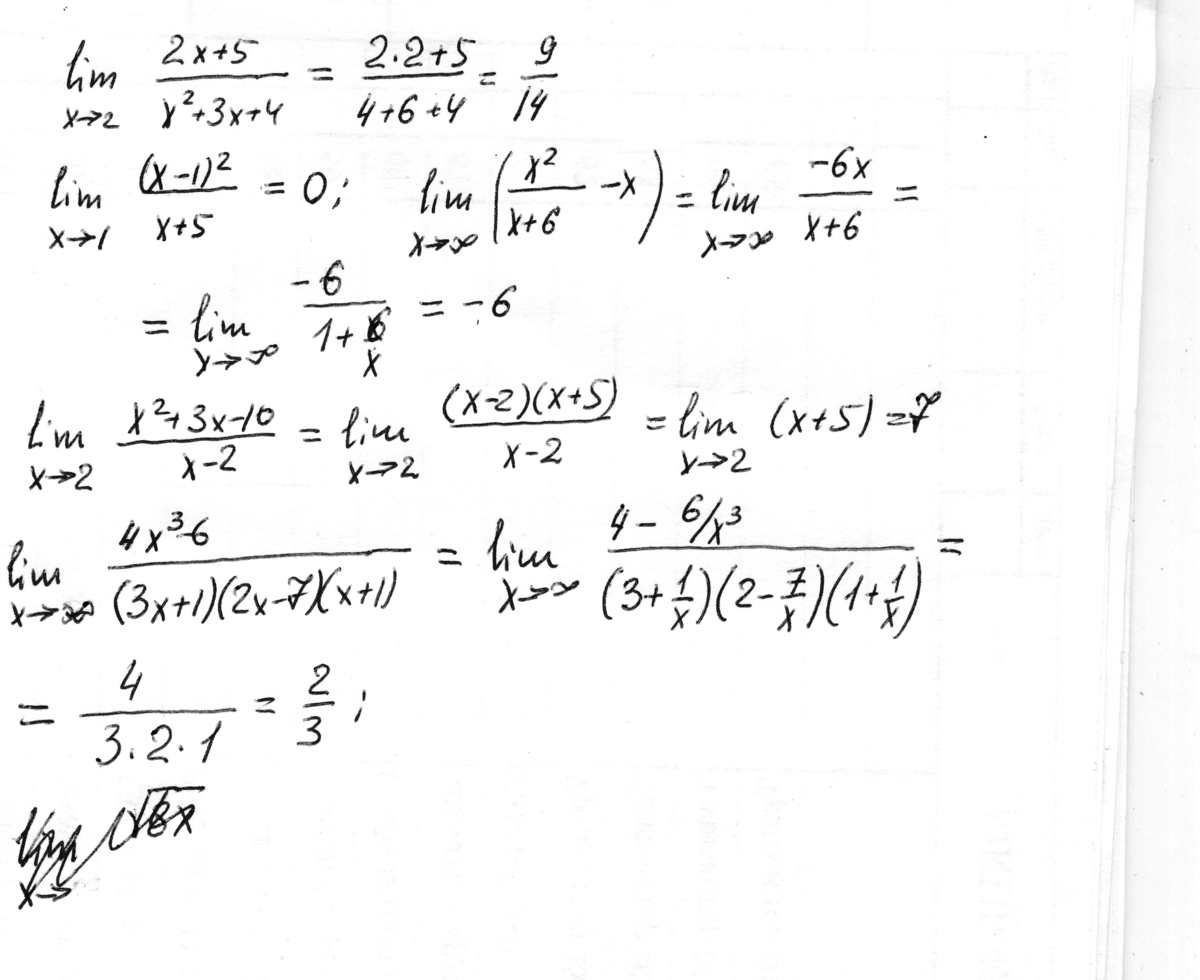 lim x→2 (2x+5)/(x²+3x+4) = (2·2+5)/(4+6+4) = 9/14
lim x→1 (x-1)²/(x+5) = 0; lim x→∞ (x²/(x+6) - x) = lim x→∞ -6x/(x+6) =
= lim x→∞ -6/(1+6/x) = -6
lim x→2 (x²+3x-10)/(x-2) = lim x→2 (x-2)(x+5)/(x-2) = lim x→2 (x+5) = 7
lim x→∞ (4x³-6)/((3x+1)(2x-7)(x+1)) = lim x→∞ (4 - 6/x³)/((3+1/x)(2-7/x)(1+1/x)) =
= 4/(3·2·1) = 2/3;
lim x→